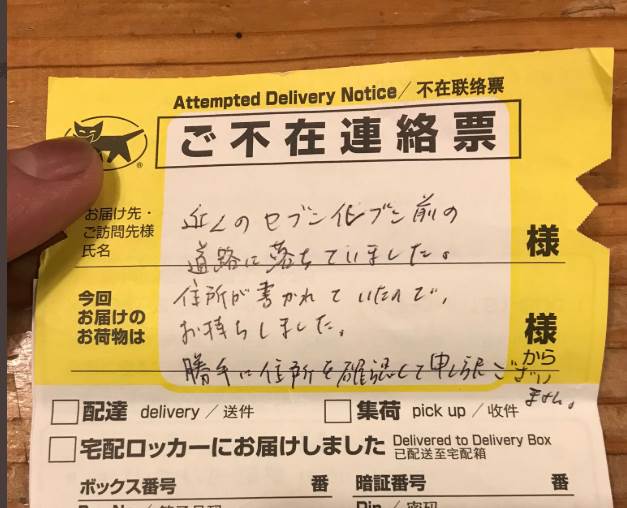 Attempted Delivery Notice / 不在联络票
ご不在連絡票
®
お届け先・
ご訪問先様
氏名
様
近くのセブンイレブン前の
道路に落ちていました。
今回
お届けの
お荷物は
様
住所が書かれていたので、
お持ちしました。
勝手に住所を確認して申し訳ございません。
から
配達 delivery / 送件
集荷 pick up / 收件
宅配ロッカーにお届けしました Delivered to Delivery Box
已配送至宅配箱
ボックス番号 番 暗証番号 番